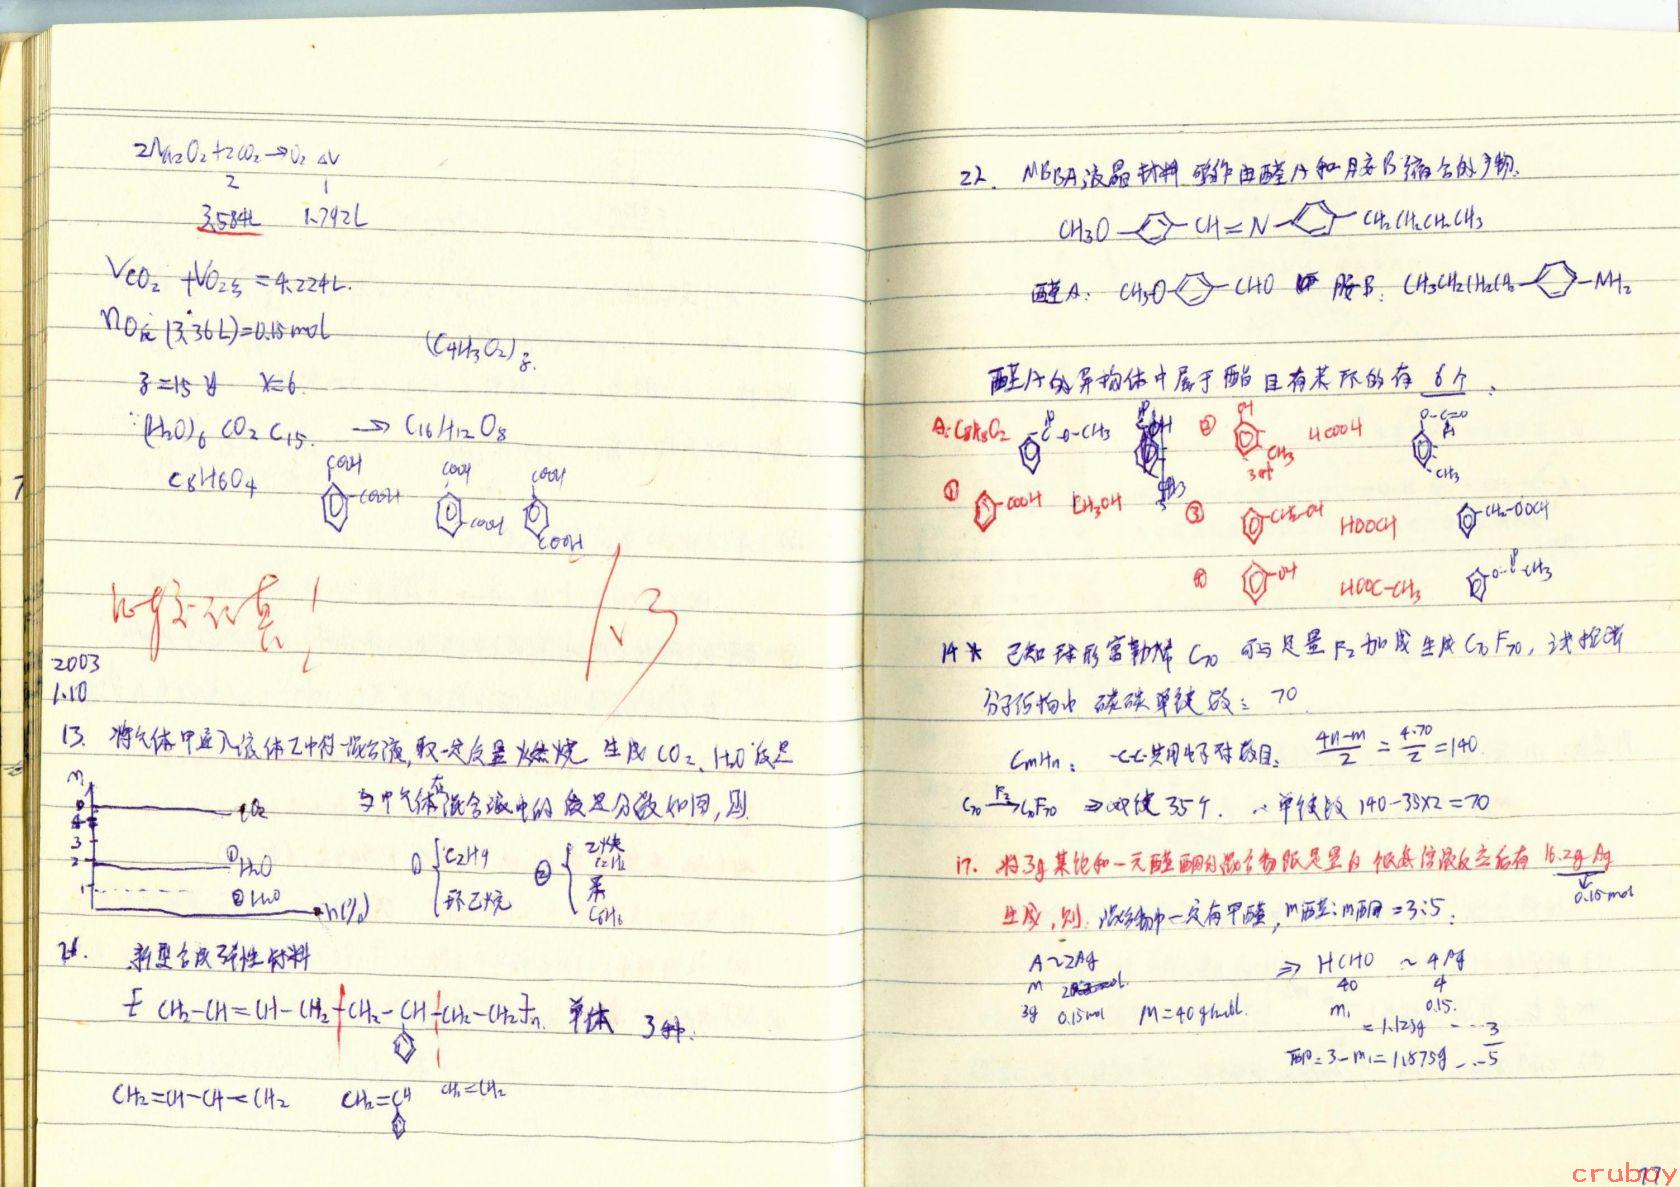 2Na₂O₂+2CO₂→O₂ ΔV
2 1
3.584L 1.792L
VCO₂ + VO₂ =4.224L.
(3.36L)=0.15mol
(C₄H₃O₂)
=15 X=6
(H₂O)₆ CO₂ C₁₅. → C₁₆H₁₂O₈
C₈H₆O₄ COOH COOH COOH
COOH COOH COOH
比较认真! 1/3
2003
1.10
13. 将气体甲通入液体乙中得一混合液,取一定质量燃烧 生成CO₂、H₂O质量
与甲气体在混合液中的质量分数如图,则
m
4
3
2
1
CO₂
① H₂O
② H₂O
① { C₂H₄
环己烷
② { 乙炔 C₂H₂
苯 C₆H₆
新型合成弹性材料
[ CH₂-CH=CH-CH₂-CH₂-CH-CH₂-CH₂]n 单体 3种.
CH₂=CH-CH=CH₂ CH₂=CH CH₂=CH₂
22. MBBA液晶材料 可看作由醛A和胺B缩合的产物.
CH₃O- -CH=N- -CH₂CH₂CH₂CH₃
醛A: CH₃O- -CHO 胺B: CH₃CH₂CH₂CH₂- -NH₂
醛A的异构体中属于酯且有苯环的有 6个.
A:C₈H₈O₂ C-O-CH₃ ② OH CH₃ 3种 HCOOH O-C=O H CH₃
① -COOH CH₃OH ③ -CH₂-OH HOOCH -CH₂-OOCH
④ -OH HOOC-CH₃ -O-C-CH₃
14* 已知球形富勒烯 C₇₀ 可与足量F₂加成生成C₇₀F₇₀, 试推断
分子结构中 碳碳单键数: 70
CmHn: C-C共用电子对数目: 4n-m/2 = 4·70/2 =140
C₇₀ F₂→ C₇₀F₇₀ ⇒双键35个. ∴单键数 140-35×2=70
17. 将3g某饱和一元醛酮的混合物跟足量的银氨溶液反应后有 16.2g Ag
0.15mol
生成,则: 混合物中一定有甲醛, m醛:m酮=3:5.
A~2Ag ⇒ HCHO ~ 4Ag
M 40 4
3g 0.15mol M=40g/mol. m₁ 0.15.
=1.125g --- 3
酮=3-m₁=1.875g --- 5
77
cruboy